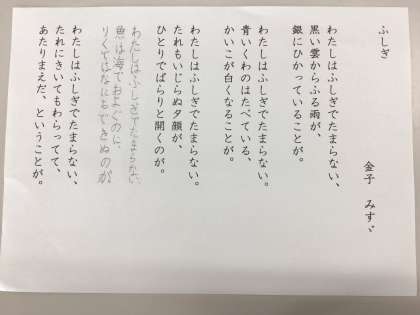 ふしぎ
金子 みすゞ
わたしはふしぎでたまらない、
黒い雲からふる雨が、
銀にひかっていることが。
わたしはふしぎでたまらない。
青いくわのはたべている、
かいこが白くなることが。
わたしはふしぎでたまらない。
たれもいじらぬ夕顔が、
ひとりでぱらりと開くのが。
わたしはふしぎでたまらない
魚は海でおよぐのに、
りくではなにもできぬのが
わたしはふしぎでたまらない、
たれにきいてもわらってて、
あたりまえだ、ということが。